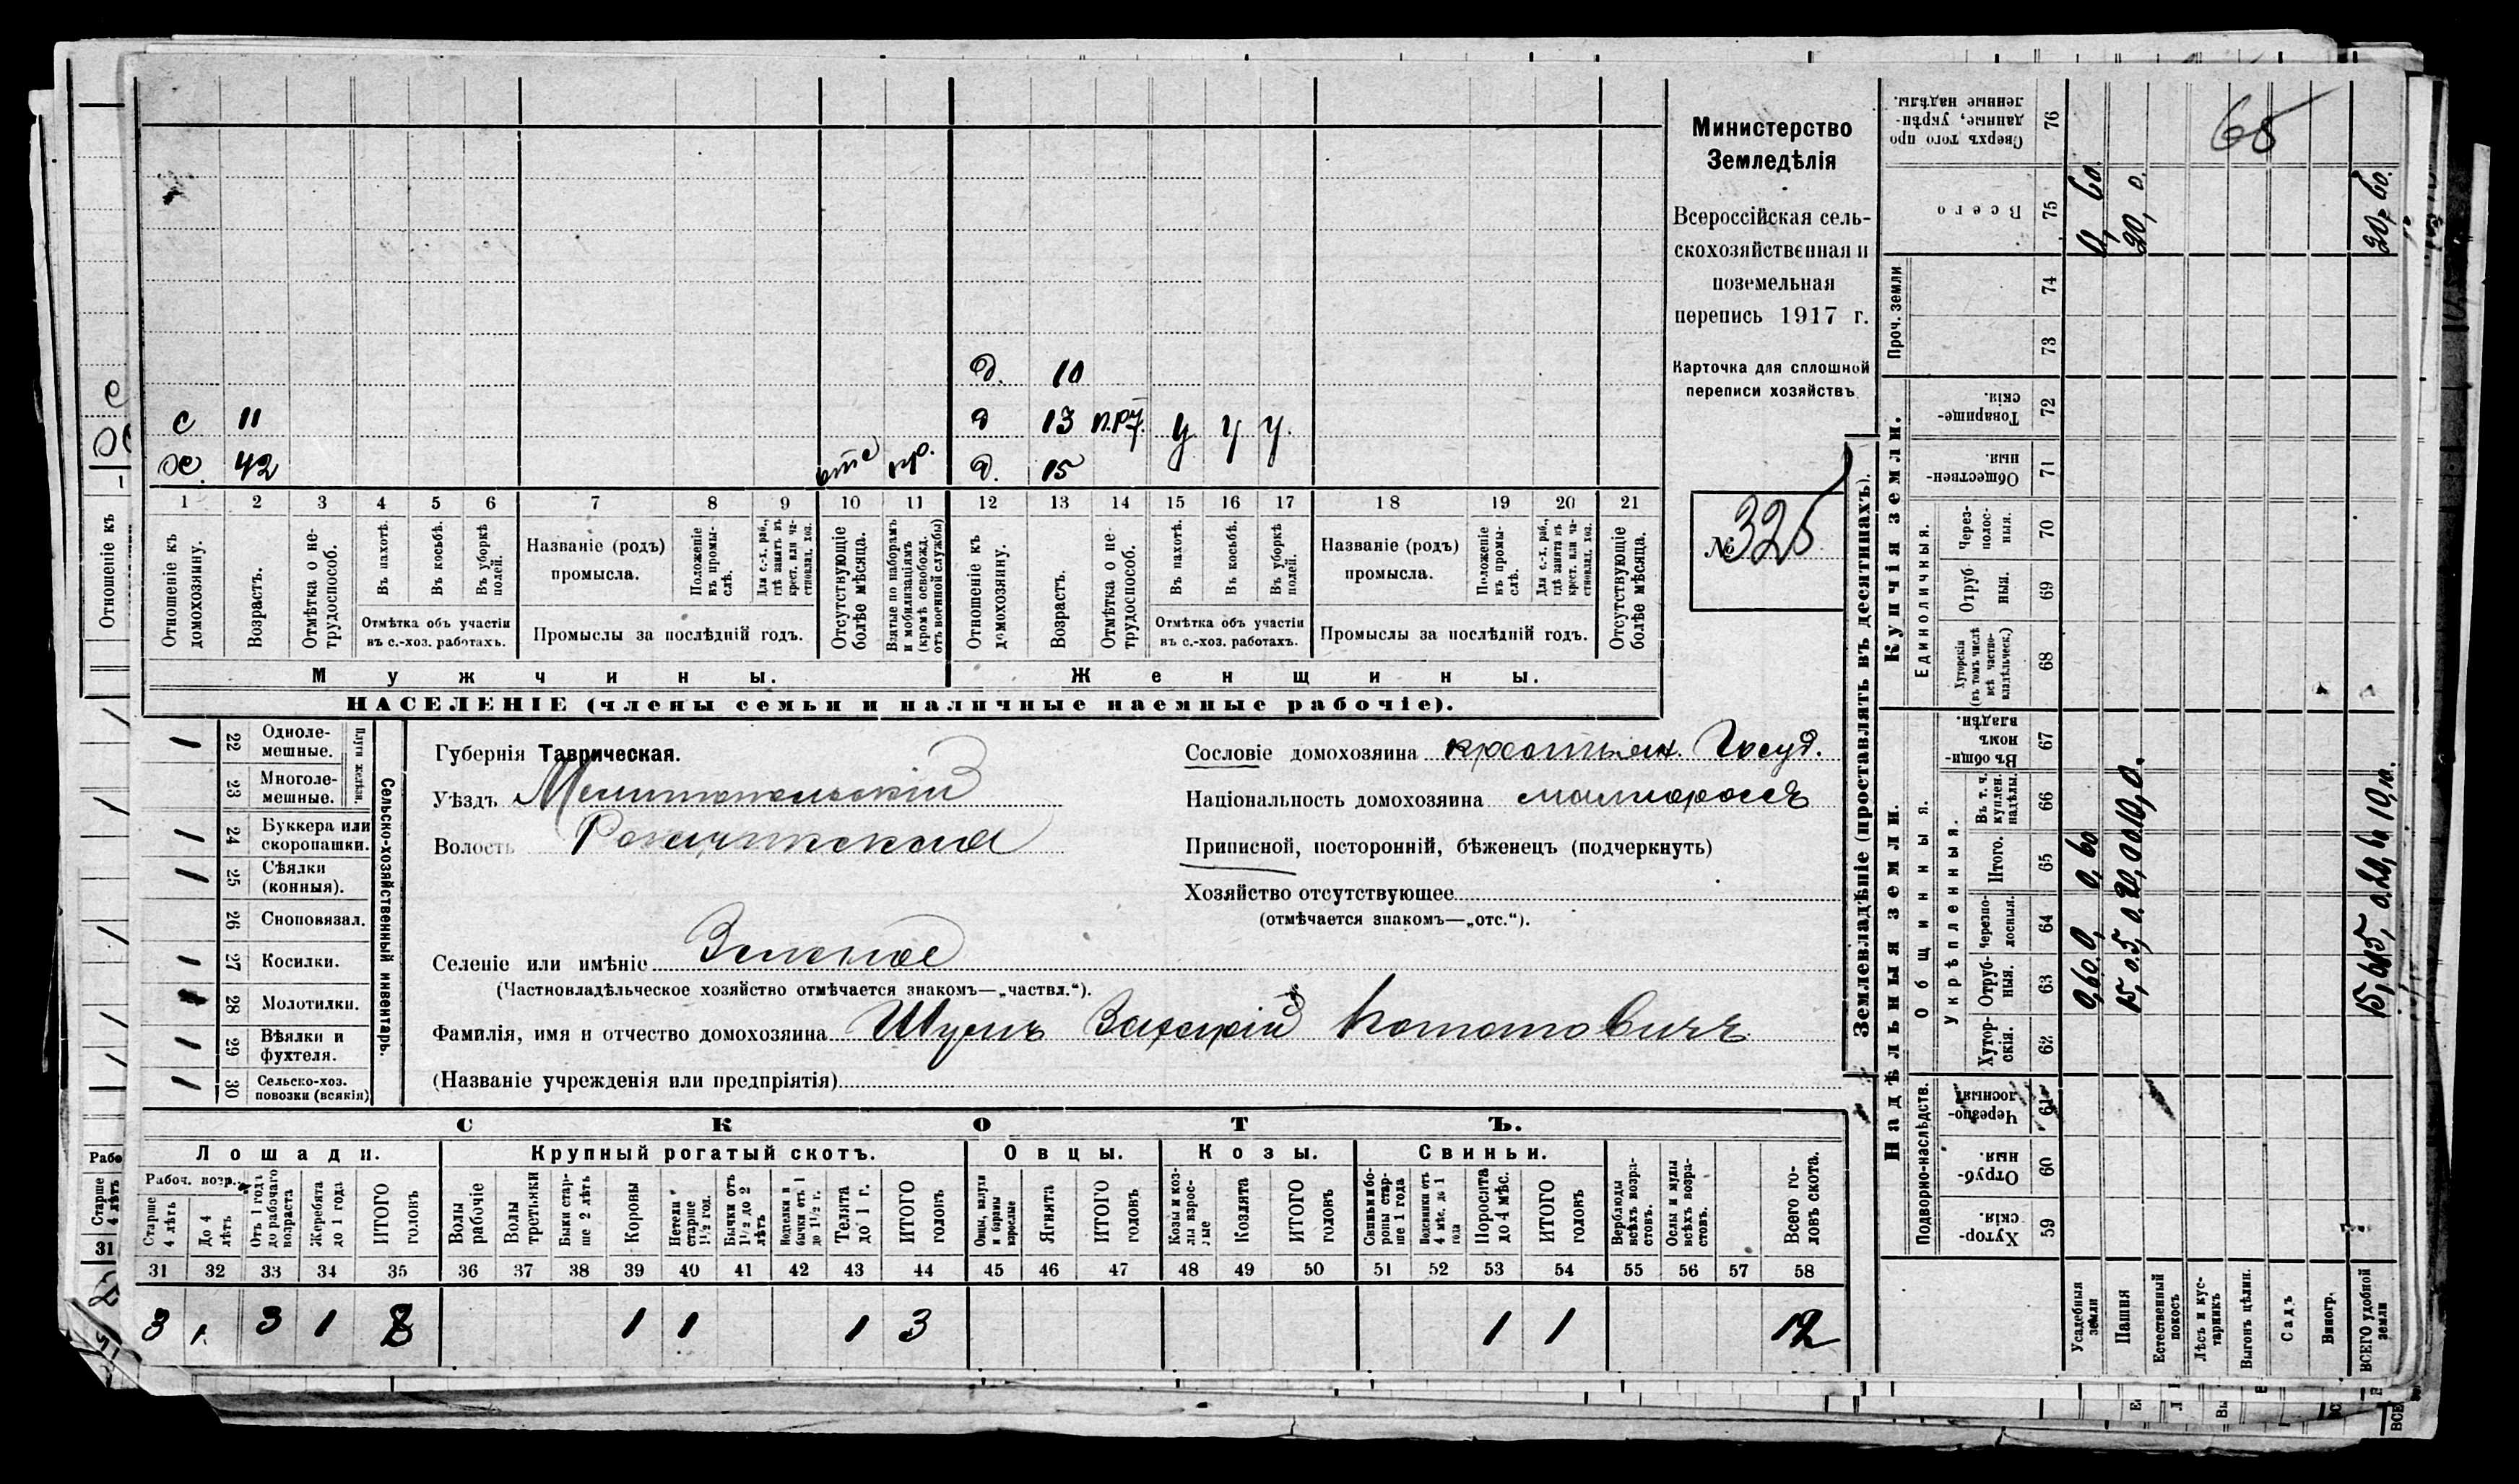 Министерство
Земледѣлія
Всероссійская сель-
скохозяйственная и
поземельная
перепись 1917 г.
Карточка для сплошной
переписи хозяйствъ
№ 325
65
д. 10
с 11 д 13 у у у.
42 отс пр. д. 15
1 2 3 4 5 6 7 8 9 10 11 12 13 14 15 16 17 18 19 20 21
Отношеніе къ домохозяину.
Возрастъ.
Отмѣтка о не-трудоспособ.
Въ пахотѣ.
Въ косьбѣ.
Въ уборкѣ полей.
Отмѣтка объ участіи
въ с.-хоз. работахъ.
Названіе (родъ)
промысла.
Положеніе въ промы-слѣ.
Для с.-х. раб., гдѣ занятъ въ крест. или ча-стновлад. хоз.
Промыслы за послѣдній годъ.
Отсутствующіе болѣе мѣсяца.
Взятые по наборамъ и мобилизаціямъ (кромѣ освобожд. отъ военной службы)
Отношеніе къ домохозяину.
Возрастъ.
Отмѣтка о не-трудоспособ.
Въ пахотѣ.
Въ косьбѣ.
Въ уборкѣ полей.
Отмѣтка объ участіи
въ с.-хоз. работахъ.
Названіе (родъ)
промысла.
Положеніе въ промы-слѣ.
Для с.-х. раб., гдѣ занята въ крест. или ча-стновлад. хоз.
Промыслы за послѣдній годъ.
Отсутствующіе болѣе мѣсяца.
Мужчины. Женщины.
НАСЕЛЕНІЕ (члены семьи и наличные наемные рабочіе).
Сельско-хозяйственный инвентарь.
Плуги желѣзн.
1 22 Одноле-мешные.
23 Многоле-мешные.
1 24 Буккера или скоропашки.
1 25 Сѣялки (конныя).
26 Сноповязал.
1 27 Косилки.
28 Молотилки.
1 29 Вѣялки и фухтеля.
1 30 Сельско-хоз. повозки (всякія)
Губернія Таврическая.
Уѣздъ Мелитопольскій
Волость
Селеніе или имѣніе Зеленое
(Частновладѣльческое хозяйство отмѣчается знакомъ—„частвл.“).
Фамилія, имя и отчество домохозяина Шумъ Захарій Потаповичъ
(Названіе учрежденія или предпріятія)
Сословіе домохозяина крестьян. Госуд.
Національность домохозяина малиороссъ
Приписной, посторонній, бѣженецъ (подчеркнуть)
Хозяйство отсутствующее
(отмѣчается знакомъ—„отс.“).
СКОТЪ.
Лошади. Крупный рогатый скотъ. Овцы. Козы. Свиньи.
Рабоч. возр.
Старше 4 лѣтъ
До 4 лѣтъ
Отъ 1 годъ до рабочаго возраста
Жеребята до 1 года
ИТОГО головъ
Волы рабочіе
Волы третьяки
Быки стар-ше 2 лѣтъ
Коровы
Нетели старше 1½ год.
Бычки отъ 1½ до 2 лѣтъ
Подтелки и бычки отъ 1 до 1½ г.
Телята до 1 г.
ИТОГО головъ
Овцы, валухи и бараны взрослые
Ягнята
ИТОГО головъ
Козы и коз-лы взрос-лые
Козлята
ИТОГО головъ
Свиньи и бо-ровы стар-ше 1 года
Подсвинки отъ 4 мѣс. до 1 года
Поросята до 4 мѣс.
ИТОГО головъ
Верблюды всѣхъ возра-стовъ.
Ослы и мулы всѣхъ возра-стовъ.
Всего го-ловъ скота.
31 32 33 34 35 36 37 38 39 40 41 42 43 44 45 46 47 48 49 50 51 52 53 54 55 56 57 58
3 1 3 1 8 1 1 1 3 1 1 12
Землевладѣніе (проставлять въ десятинахъ).
Надѣльныя земли. Купчія земли. Проч. земли
Подворно-наслѣдств. Общинныя. Укрѣпленныя. Единоличныя.
Хутор-скія. 59
Отруб-ныя. 60
Черезпо-лосныя. 61
Хутор-скія. 62
Отруб-ныя. 63
Черезпо-лосныя. 64
Итого. 65
Въ т. ч. куплен. надѣлы. 66
Въ общин-номъ владѣн. 67
Хуторскія (въ томъ числѣ всѣ частно-владѣльческ.) 68
Отруб-ныя. 69
Через-полос-ныя. 70
Обществен-ныя. 71
Товарище-скія. 72
73
74
Всего 75
Сверхъ того про-данные, укрѣп-ленные надѣлы. 76
Усадебныя земли 0,60 0, 0,60 0,60
Пашня 15,0 5,0 20,0 10,0. 20,0
Естественный покосъ
Лѣсъ и кус-тарникъ
Выгонъ цѣлин.
Садъ
Виногр.
ВСЕГО удобной земли 15,60 5,0 20,60 10,0. 20,60.
Отношеніе къ
Рабо
Старше 4 лѣтъ
31